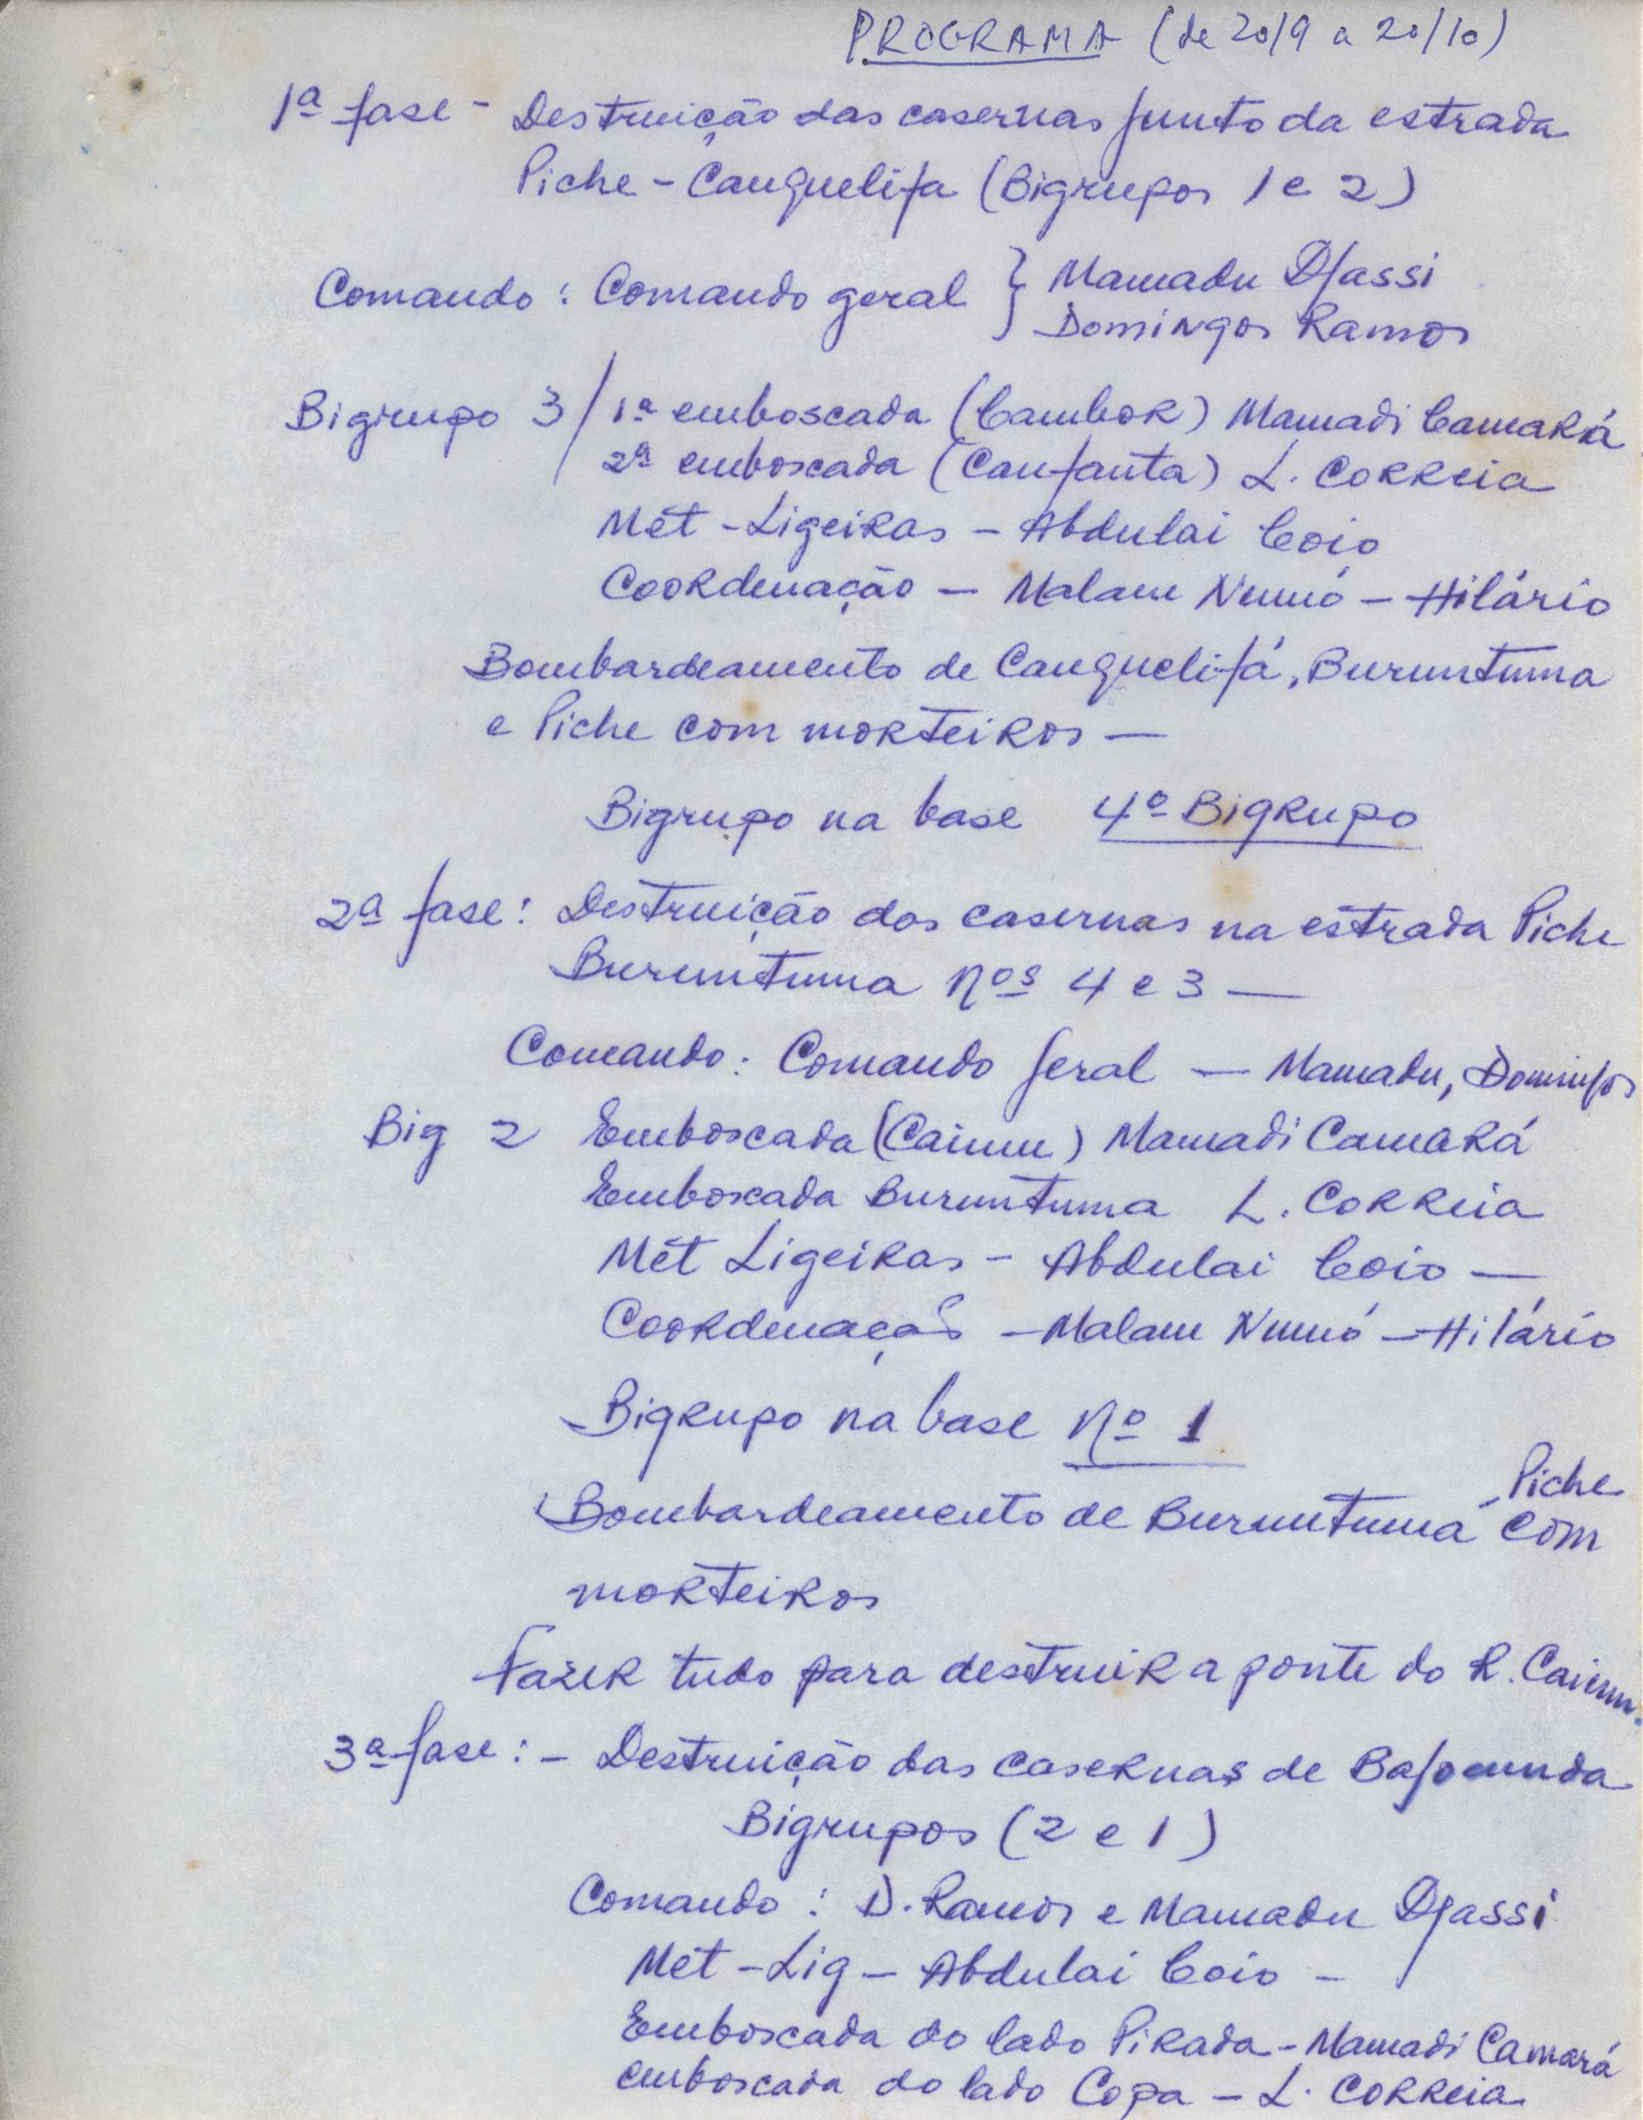 PROGRAMA (de 20/9 a 20/10)
1ª fase - Destruição das casernas junto da estrada
Piche - Canquelifa (Bigrupos 1 e 2)
Comando: Comando geral } Mamadu Djassi
Domingos Ramos
Bigrupo 3 / 1ª emboscada (Cambor) Mamadi Camará
2ª emboscada (Canfanta) L. Correia
Mét - Ligeiras - Abdulai Coio
Coordenação - Malam Numó - Hilário
Bombardeamento de Canquelifá, Buruntuma
e Piche com morteiros -
Bigrupo na base 4º Bigrupo
2ª fase: Destruição dos casernas na estrada Piche
Buruntuma Nos 4 e 3 -
Comando: Comando geral - Mamadu, Domingos
Big 2 Emboscada (Caium) Mamadi Camará
Emboscada Buruntuma L. Correia
Mét Ligeiras - Abdulai Coio -
Coordenação - Malam Numó - Hilário
Bigrupo na base Nº 1
Piche
Bombardeamento de Buruntuma com
morteiros
Fazer tudo para destruir a ponte do R. Caium.
3ª fase: - Destruição das casernas de Bajocunda
Bigrupos (2 e 1)
Comando: D. Ramos e Mamadu Djassi
Mét - Lig - Abdulai Coio -
Emboscada do lado Pirada - Mamadi Camará
emboscada do lado Copa - L. Correia